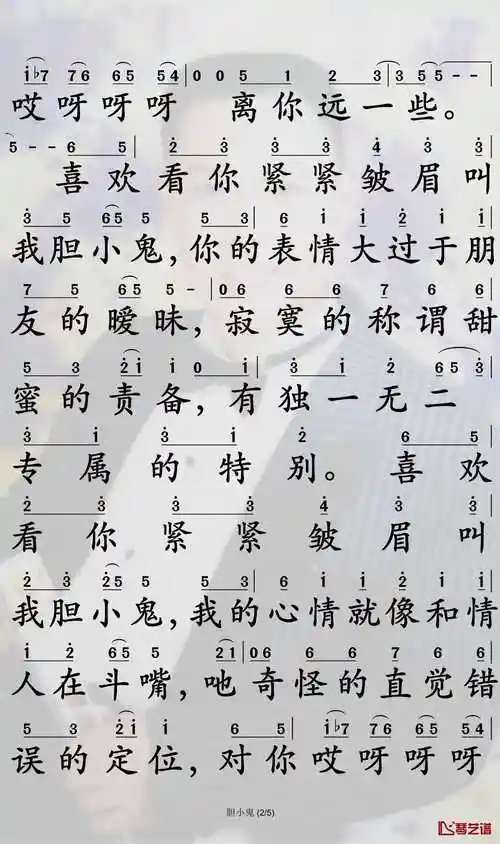 i♭7 76 65 54 | 0 0 5 1 2 3 | 3 55 - - |
哎呀呀呀 离你远一些。
5 - - 6 5 | 2 3 3 3 4 3 3
喜欢看你紧紧皱眉叫
3 5 65 5 5 3 | 6 i i 2 i i
我胆小鬼,你的表情大过于朋
7 5 65 5 - - | 0 6 6 6 7 6 6
友的暧昧,寂寞的称谓甜
5 3 2i i 0 i | 3 i 3 i 2 65 3
蜜的责备,有独一无二
3 i 2 6 5
专属的特别。喜欢
2 3 3 3 4 3 3
看你紧紧皱眉叫
2 3 25 5 5 3 | 6 i i 2 i i
我胆小鬼,我的心情就像和情
i 2 65 5 2i | 0 6 6 6 7 6 6
人在斗嘴,吔奇怪的直觉错
5 3 2i i 6 5 | i♭7 76 65 54
误的定位,对你哎呀呀呀
胆小鬼 (2/5)
琴艺谱